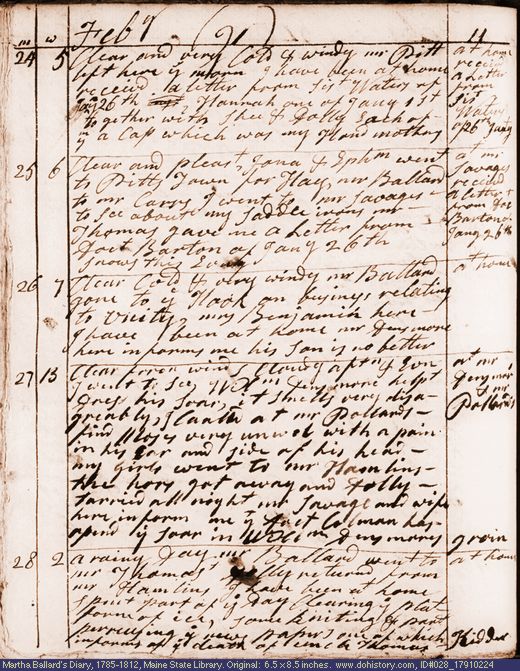 Feby (91) 11
m w
24 5 Clear and very Cold & windy mr Pitt
left here ys morn I have been at home
receivd 1 a letter from Sist Waters of
Jany 26th Hannah one of Jany 1st
together with Shee & Dolly Each of
y a Cap which was my Hond mothers
at home
receivd
a Letter
from
Sist
Waters
of 26 Jany
25 6 Clear and pleast, Jona & Ephm went
to Pitts Town for Hay, mr Ballard
to mr Carrs I went to mr Savages
to See about my Saddle irons mr
Thomas gave me a Letter from
Doct Barton of Jany 26th
Snows this Evng
at mr
Savages
receivd
a letter
from Doc
Barton of
Jany 26th
26 7 Clear Cold & very windy mr Ballard
gone to y Hook on businys relating
to mrs Benjamin here
I have been at home mr Densmore
here informs me his Son is no better
at home
27 13 Clear moon wind Cloudy aptn & Evn
I went to See Wm Densmore helpt
Dres his Soar, it Smells very disa
greably, I Calld at mr Pollards
find Moses very unwel with a pain
in his Ear and Side of his head
my girls went to mr Hamlins
the hors got away and Dolly
tarried all night mr Savage and wife
here inform me y Doct Coleman has
opend y Soar in Densmores groin
at mr
Densmors
& mr
Pollards
28 2 a rainy Day, mr Ballard went to
mr Thomas Dolly returnd from
mr Hamlins I have been at home
Spent part of y Day Clearing y plat
form of ice, Some knitting & part
peruseing y news papers one of which
informs of y death of Thomas
at home
Kidder
Martha Ballard's Diary, 1785-1812, Maine State Library. Original: 6.5 x 8.5 inches. www.dohistory.com, ID#028_17910224